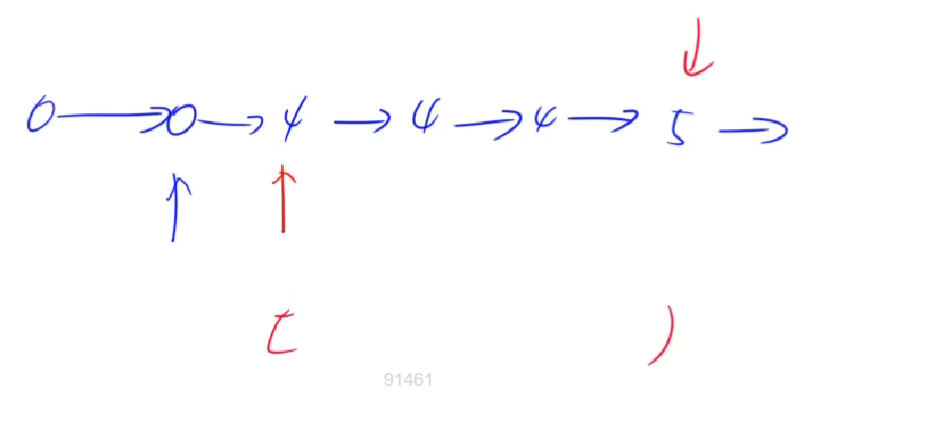 0 → 0 → 4 → 4 → 4 → 5 →
[ )
91461